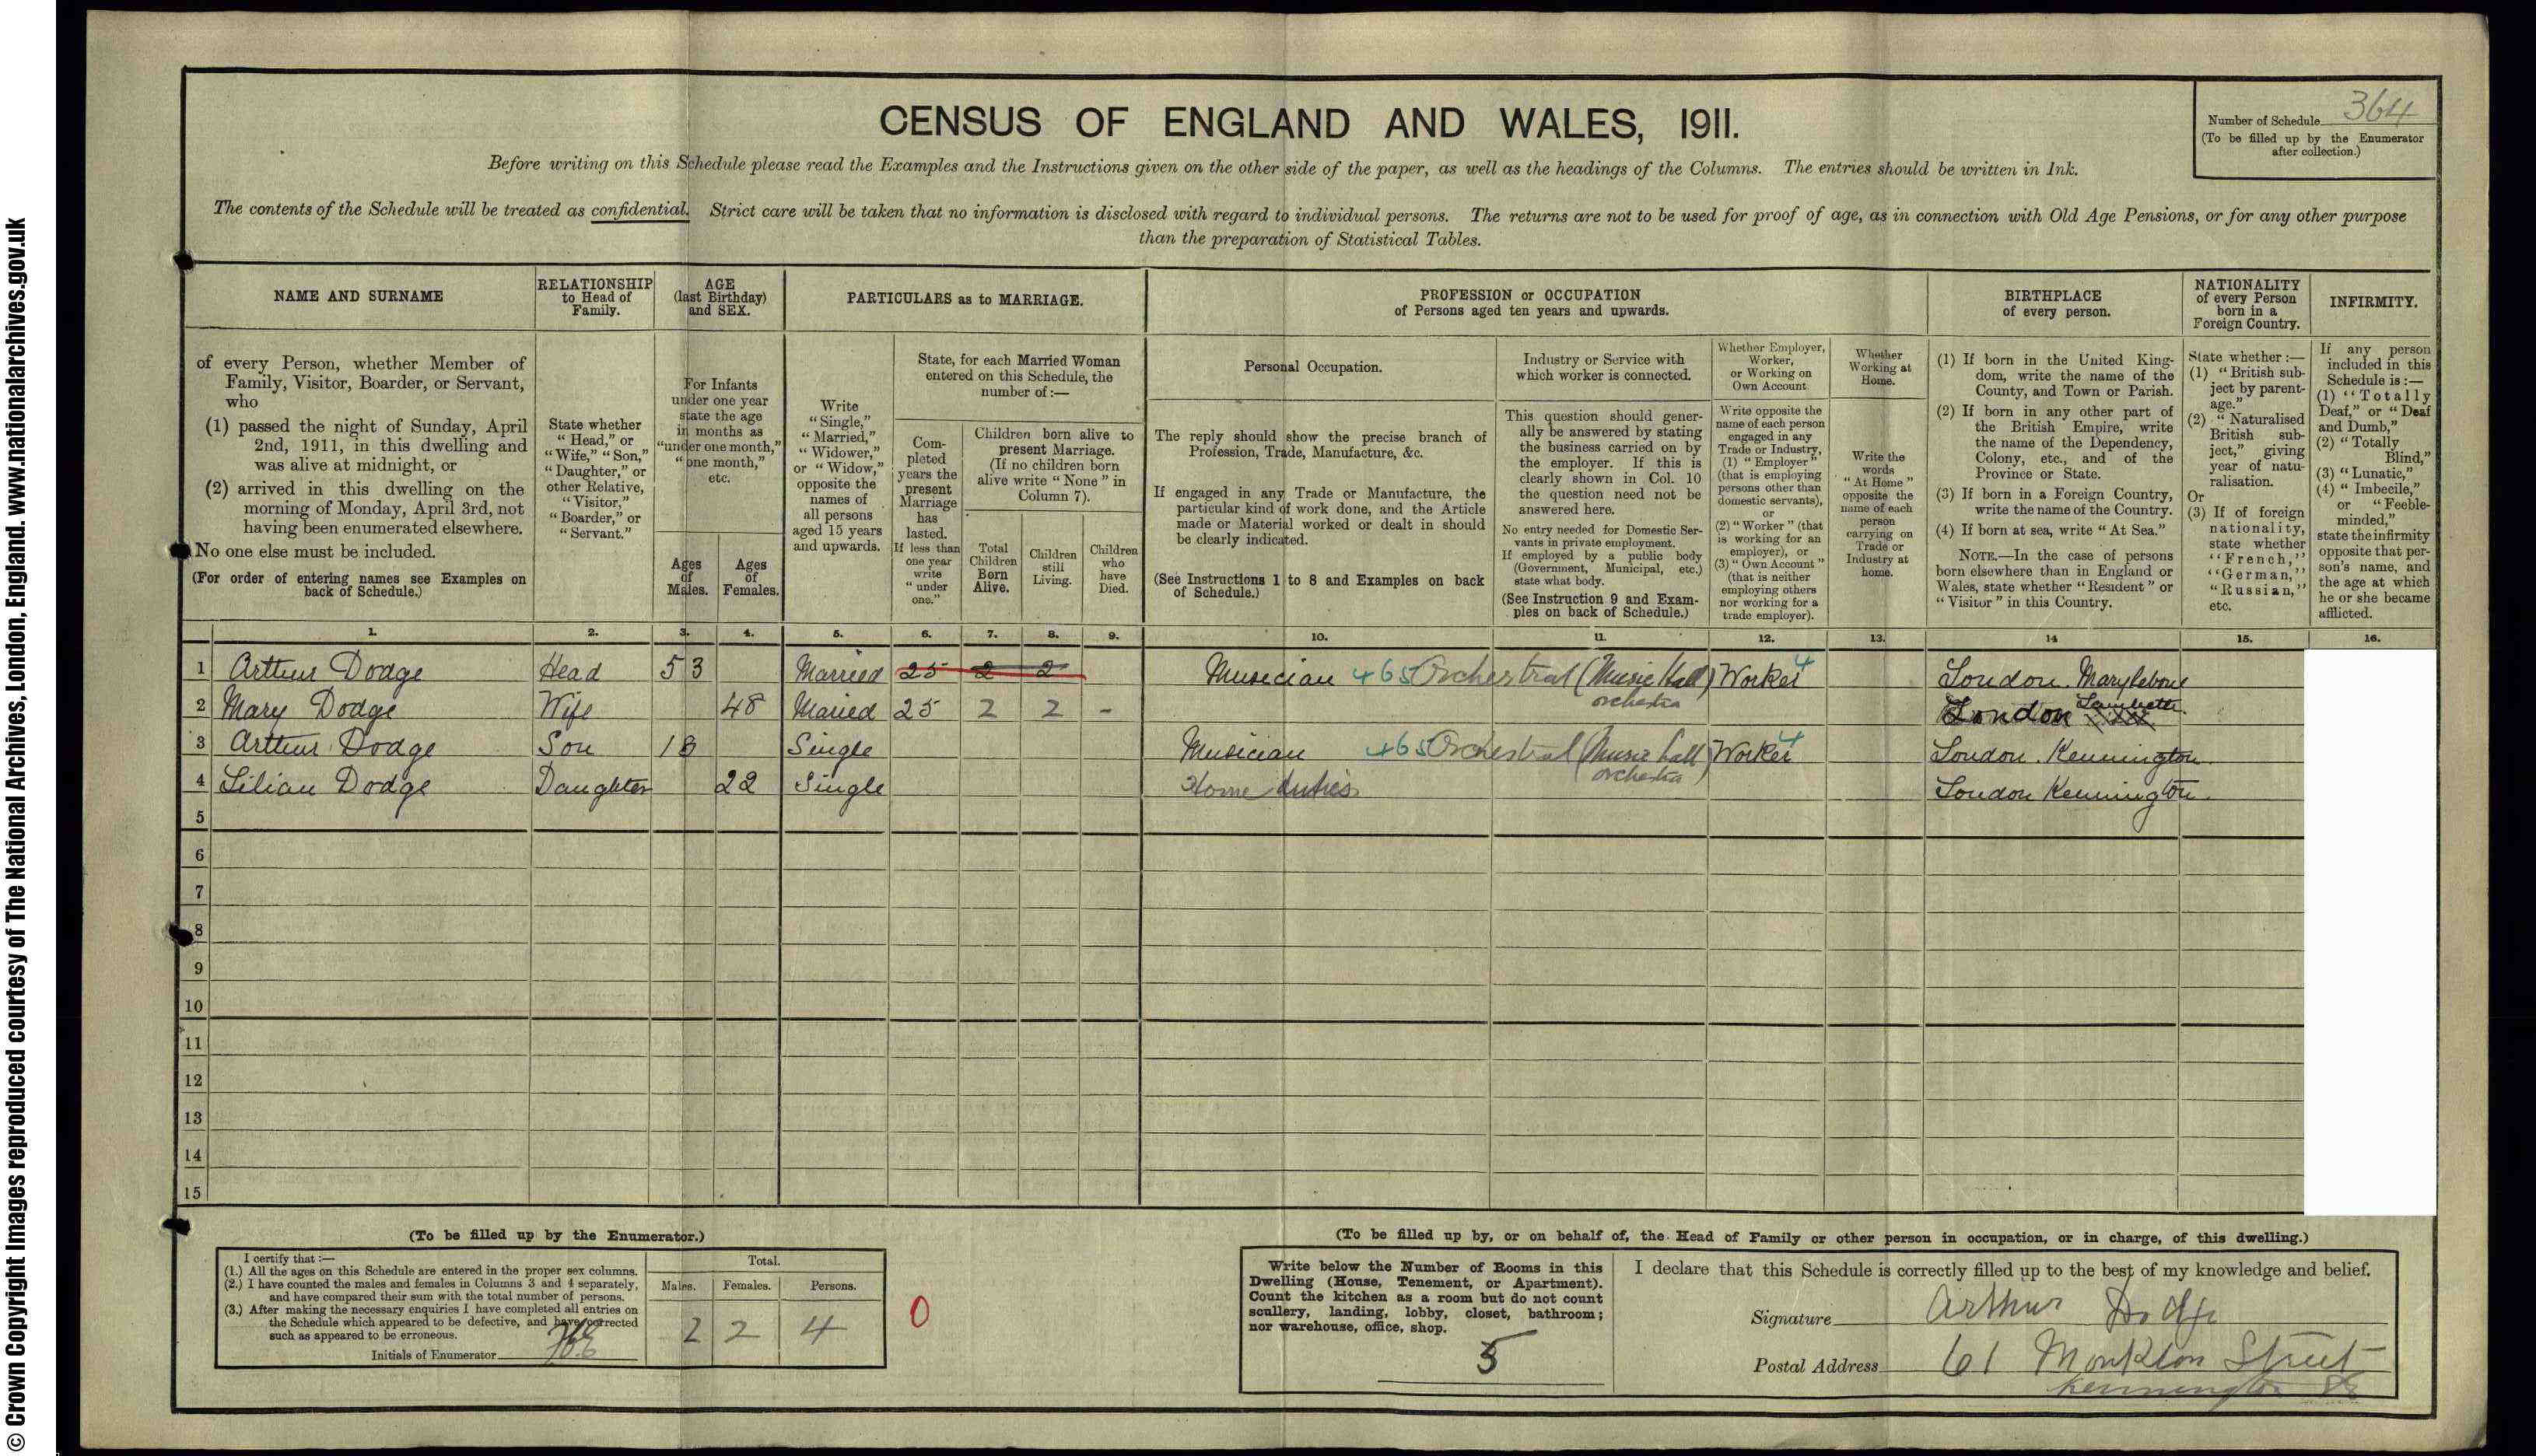 © Crown Copyright Images reproduced courtesy of The National Archives, London, England. www.nationalarchives.gov.uk
CENSUS OF ENGLAND AND WALES, 1911.
Number of Schedule 364
(To be filled up by the Enumerator
after collection.)
Before writing on this Schedule please read the Examples and the Instructions given on the other side of the paper, as well as the headings of the Columns. The entries should be written in Ink.
The contents of the Schedule will be treated as confidential. Strict care will be taken that no information is disclosed with regard to individual persons. The returns are not to be used for proof of age, as in connection with Old Age Pensions, or for any other purpose
than the preparation of Statistical Tables.
NAME AND SURNAME
of every Person, whether Member of
Family, Visitor, Boarder, or Servant,
who
(1) passed the night of Sunday, April
2nd, 1911, in this dwelling and
was alive at midnight, or
(2) arrived in this dwelling on the
morning of Monday, April 3rd, not
having been enumerated elsewhere.
No one else must be included.
(For order of entering names see Examples on
back of Schedule.)
RELATIONSHIP
to Head of
Family.
State whether
"Head," or
"Wife," "Son,"
"Daughter," or
other Relative,
"Visitor,"
"Boarder," or
"Servant."
AGE
(last Birthday)
and SEX.
For Infants
under one year
state the age
in months as
"under one month,"
"one month,"
etc.
Ages
of
Males.
Ages
of
Females.
PARTICULARS as to MARRIAGE.
Write
"Single,"
"Married,"
"Widower,"
or "Widow,"
opposite the
names of
all persons
aged 15 years
and upwards.
State, for each Married Woman
entered on this Schedule, the
number of:—
Com-
pleted
years the
present
Marriage
has
lasted.
If less than
one year
write
"under
one."
Children born alive to
present Marriage.
(If no children born
alive write "None" in
Column 7).
Total
Children
Born
Alive.
Children
still
Living.
Children
who
have
Died.
PROFESSION or OCCUPATION
of Persons aged ten years and upwards.
Personal Occupation.
The reply should show the precise branch of
Profession, Trade, Manufacture, &c.
If engaged in any Trade or Manufacture, the
particular kind of work done, and the Article
made or Material worked or dealt in should
be clearly indicated.
(See Instructions 1 to 8 and Examples on back
of Schedule.)
Industry or Service with
which worker is connected.
This question should gener-
ally be answered by stating
the business carried on by
the employer. If this is
clearly shown in Col. 10
the question need not be
answered here.
No entry needed for Domestic Ser-
vants in private employment.
If employed by a public body
(Government, Municipal, etc.)
state what body.
(See Instruction 9 and Exam-
ples on back of Schedule.)
Whether Employer,
Worker,
or Working on
Own Account
Write opposite the
name of each person
engaged in any
Trade or Industry,
(1) "Employer"
(that is employing
persons other than
domestic servants),
or
(2) "Worker" (that
is working for an
employer), or
(3) "Own Account"
(that is neither
employing others
nor working for a
trade employer).
Whether
Working at
Home.
Write the
words
"At Home"
opposite the
name of each
person
carrying on
Trade or
Industry at
home.
BIRTHPLACE
of every person.
(1) If born in the United King-
dom, write the name of the
County, and Town or Parish.
(2) If born in any other part of
the British Empire, write
the name of the Dependency,
Colony, etc., and of the
Province or State.
(3) If born in a Foreign Country,
write the name of the Country.
(4) If born at sea, write "At Sea."
NOTE.—In the case of persons
born elsewhere than in England or
Wales, state whether "Resident" or
"Visitor" in this Country.
NATIONALITY
of every Person
born in a
Foreign Country.
State whether:—
(1) "British sub-
ject by parent-
age."
(2) "Naturalised
British sub-
ject," giving
year of natu-
ralisation.
Or
(3) If of foreign
nationality,
state whether
"French,"
"German,"
"Russian,"
etc.
INFIRMITY.
If any person
included in this
Schedule is:—
(1) "Totally
Deaf," or "Deaf
and Dumb,"
(2) "Totally
Blind,"
(3) "Lunatic,"
(4) "Imbecile,"
or "Feeble-
minded,"
state the infirmity
opposite that per-
son's name, and
the age at which
he or she became
afflicted.
1. 2. 3. 4. 5. 6. 7. 8. 9. 10. 11. 12. 13. 14 15. 16.
1 Arthur Dodge Head 53 Married 25 2 2 Musician 465 Orchestral (Music Hall) Worker 4 London. Marylebone
orchestra
2 Mary Dodge Wife 48 Maried 25 2 2 - London Lambeth
3 Arthur Dodge Son 18 Single Musician 465 Orchestral (Music hall) Worker 4 London. Kennington
orchestra
4 Lilian Dodge Daughter 22 Single Home duties London Kennington.
5
6
7
8
9
10
11
12
13
14
15
(To be filled up by the Enumerator.)
I certify that:—
(1.) All the ages on this Schedule are entered in the proper sex columns.
(2.) I have counted the males and females in Columns 3 and 4 separately,
and have compared their sum with the total number of persons.
(3.) After making the necessary enquiries I have completed all entries on
the Schedule which appeared to be defective, and have corrected
such as appeared to be erroneous.
Initials of Enumerator
Total.
Males. Females. Persons.
2 2 4
0
(To be filled up by, or on behalf of, the Head of Family or other person in occupation, or in charge, of this dwelling.)
Write below the Number of Rooms in this
Dwelling (House, Tenement, or Apartment).
Count the kitchen as a room but do not count
scullery, landing, lobby, closet, bathroom;
nor warehouse, office, shop.
5
I declare that this Schedule is correctly filled up to the best of my knowledge and belief.
Signature Arthur Dodge
Postal Address 61 Monkton Street
Kennington SE